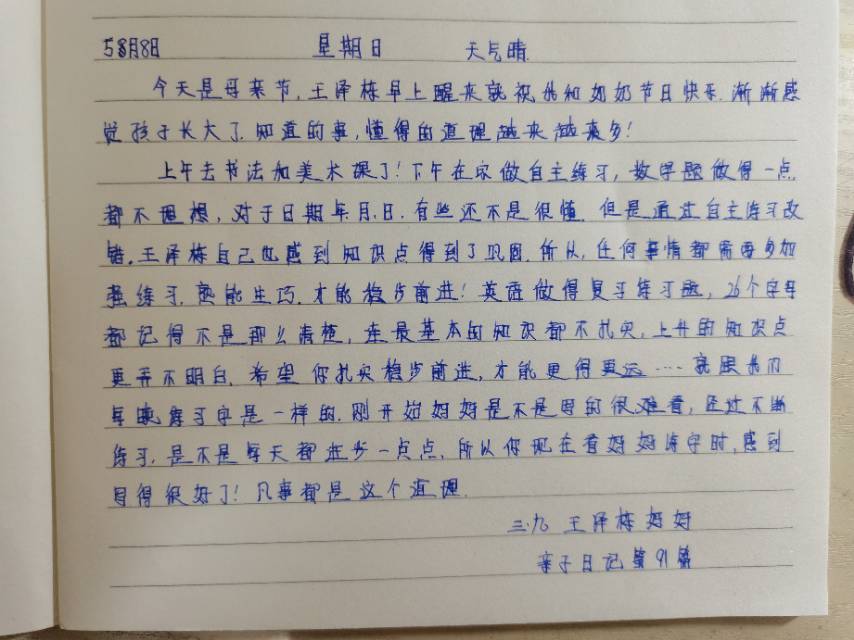 5月8日 星期日 天气晴.
今天是母亲节,王泽栋早上醒来就祝我和奶奶节日快乐.渐渐感
觉孩子长大了.知道的事,懂得的道理越来越来多!
上午去书法和美术课了!下午在家做自主练习,数学题做得一点
都不理想,对于日期年.月.日.有些还不是很懂.但是通过自主练习改
错.王泽栋自己也感到知识点得到了巩固.所以,任何事情都需要多加
强练习.熟能生巧.才能稳步前进!英语做得复习练习题,26个字母
都记得不是那么清楚,连最基本的知识都不扎实,上升的知识点
更弄不明白.希望你扎实稳步前进,才能更得更远····就跟我们
每晚练习字是一样的.刚开始妈妈是不是写的很难看,经过不断
练习.是不是每天都进步一点点.所以你现在看妈妈练字时,感到
写得很好了!凡事都是这个道理.
三.九 王泽栋妈妈
亲子日记第91篇